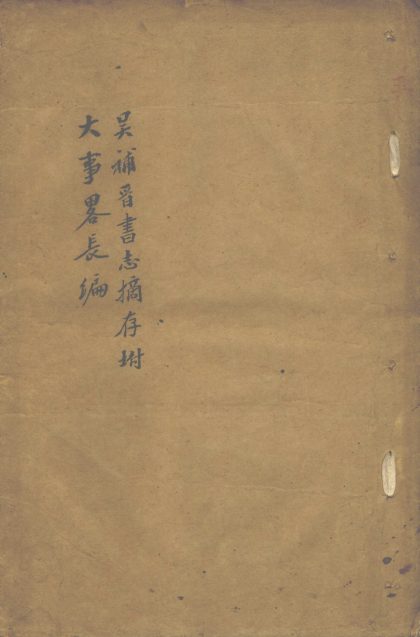 吴補晉書志摘存坿
大事畧長編